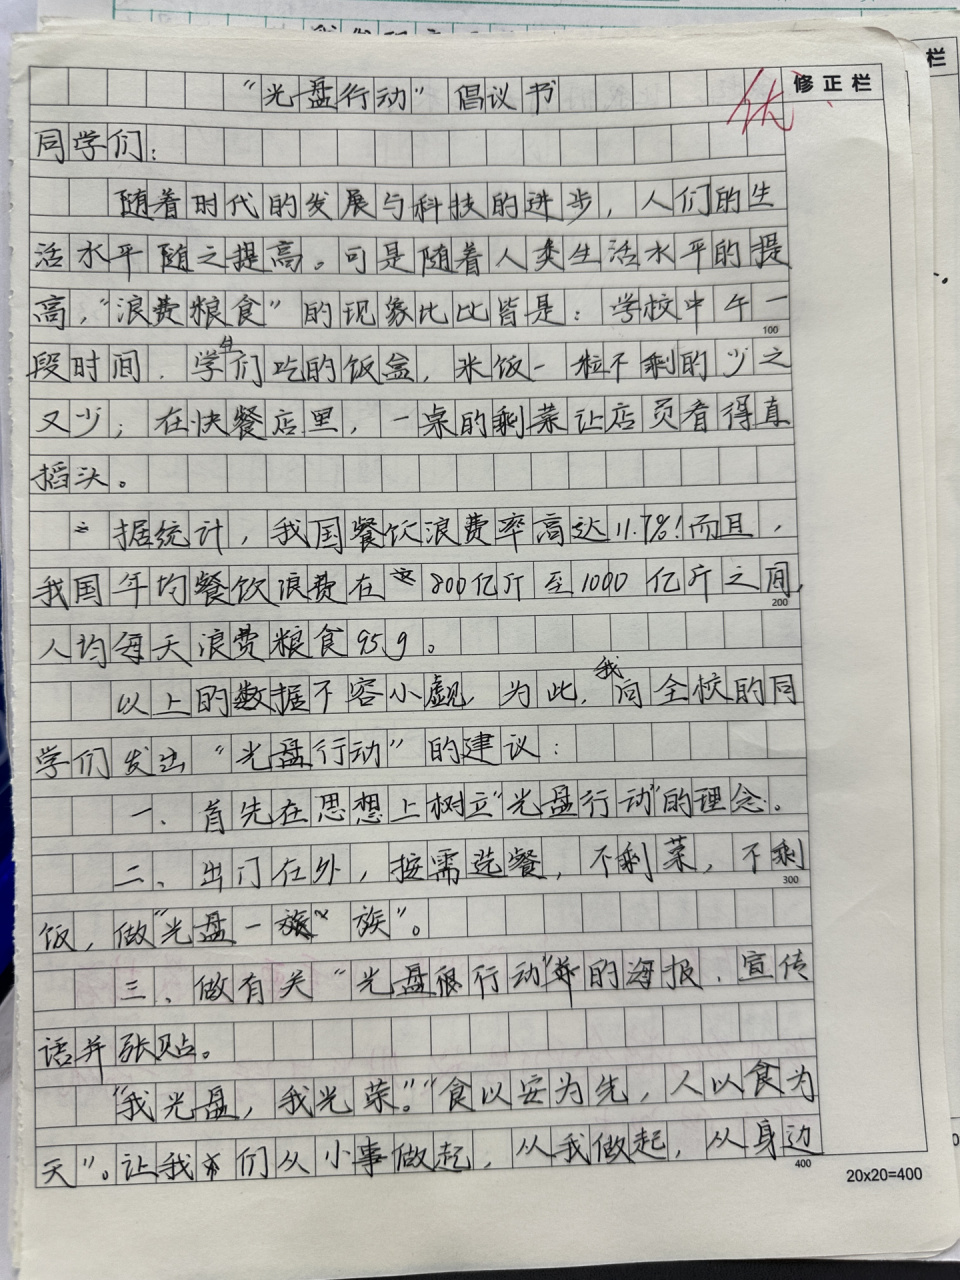 “光盘行动”倡议书
优
修正栏
同学们：
随着时代的发展与科技的进步，人们的生
活水平随之提高。可是随着人类生活水平的提
高，“浪费粮食”的现象比比皆是：学校中午一
100
段时间．学生们吃的饭盒，米饭一粒不剩的少之
又少；在快餐店里，一桌的剩菜让店员看得直
摇头。
据统计，我国餐饮浪费率高达11.7%！而且，
我国年均餐饮浪费在800亿斤至1000亿斤之间，
200
人均每天浪费粮食95g。
以上的数据不容小觑，为此，我向全校的同
学们发出“光盘行动”的建议：
一、首先在思想上树立“光盘行动”的理念。
二、出门在外，按需选餐，不剩菜，不剩
300
饭，做“光盘一族”。
三、做有关“光盘行动”的海报．宣传
语并张贴。
“我光盘，我光荣。”“食以安为先，人以食为
天”。让我们从小事做起，从我做起，从身边
400
20x20=400
栏